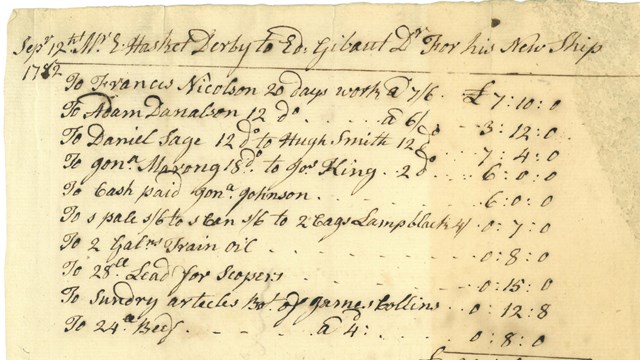 Sepr 12th Mr E: Hasket Derby to Ed: Gibaut Dr For his New Ship
1782
To Francis Nicolson 20 days work a 7/6 £ 7:10:0
To Adam Danalson 12 do a 6/ 3:12:0
To Daniel Sage 12 do to Hugh Smith 12 do 7:4:0
To Jona Marong 18 do to Jos King 2 do 6:0:0
To Cash paid Jona Johnson 6:0:0
To 1 pale 1/6 to 1 Can 1/6 to 2 Cags Lampblack 4/ 0:7:0
To 2 Galns Train oil 0:8:0
To 28 Lead for Scopers 0:15:0
To Sundry articles Bot of James Collins 0:12:8
To 24 Beef a 4d: 0:8:0